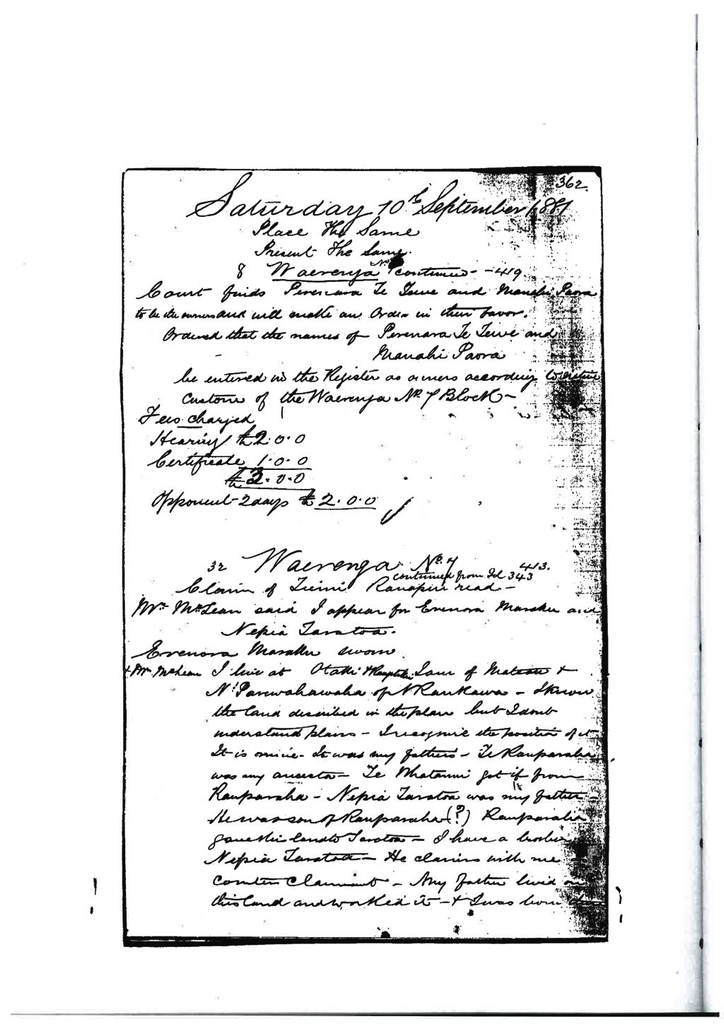 362
Saturday 10th September 1881
Place The Same
Present The Same
8 Waerenga No continued - 419
Court finds Perenara Te Tewe and Manahi Paora
to be the owners and will make an Order in their favor.
Ordered that the names of Perenara Te Tewe and
Manahi Paora
be entered in the Register as owners according to native
Custom of the Waerenga No 7 Block -
Fees charged
Hearing £2.0.0
Certificate 1.0.0
£3.0.0
Opponent 2 days £2.0.0
32 Waerenga No. 7 413.
continued from fol 343
Claim of Tuini Ranapiri read -
Mr McLean said I appear for Erenora Maraku and
Nepia Taratoa.
Erenora Maraku sworn
+ Mr McLean I live at Otaki I am of +
N' Parewahawaha of N Raukawa - I know
the land described in the plan but I dont
understand plans - I recognise the position of it
It is mine - It was my fathers - Te Rauparaha
was my ancestor - Te Whatanui got it from
Rauparaha - Nepia Taratoa was my father
He was son of Rauparaha (?) Rauparaha
gave this land to Taratoa - I have a brother
Nepia Taratoa - He claims with me
counter Claimant - My father lived on
this land and worked it - + I was born